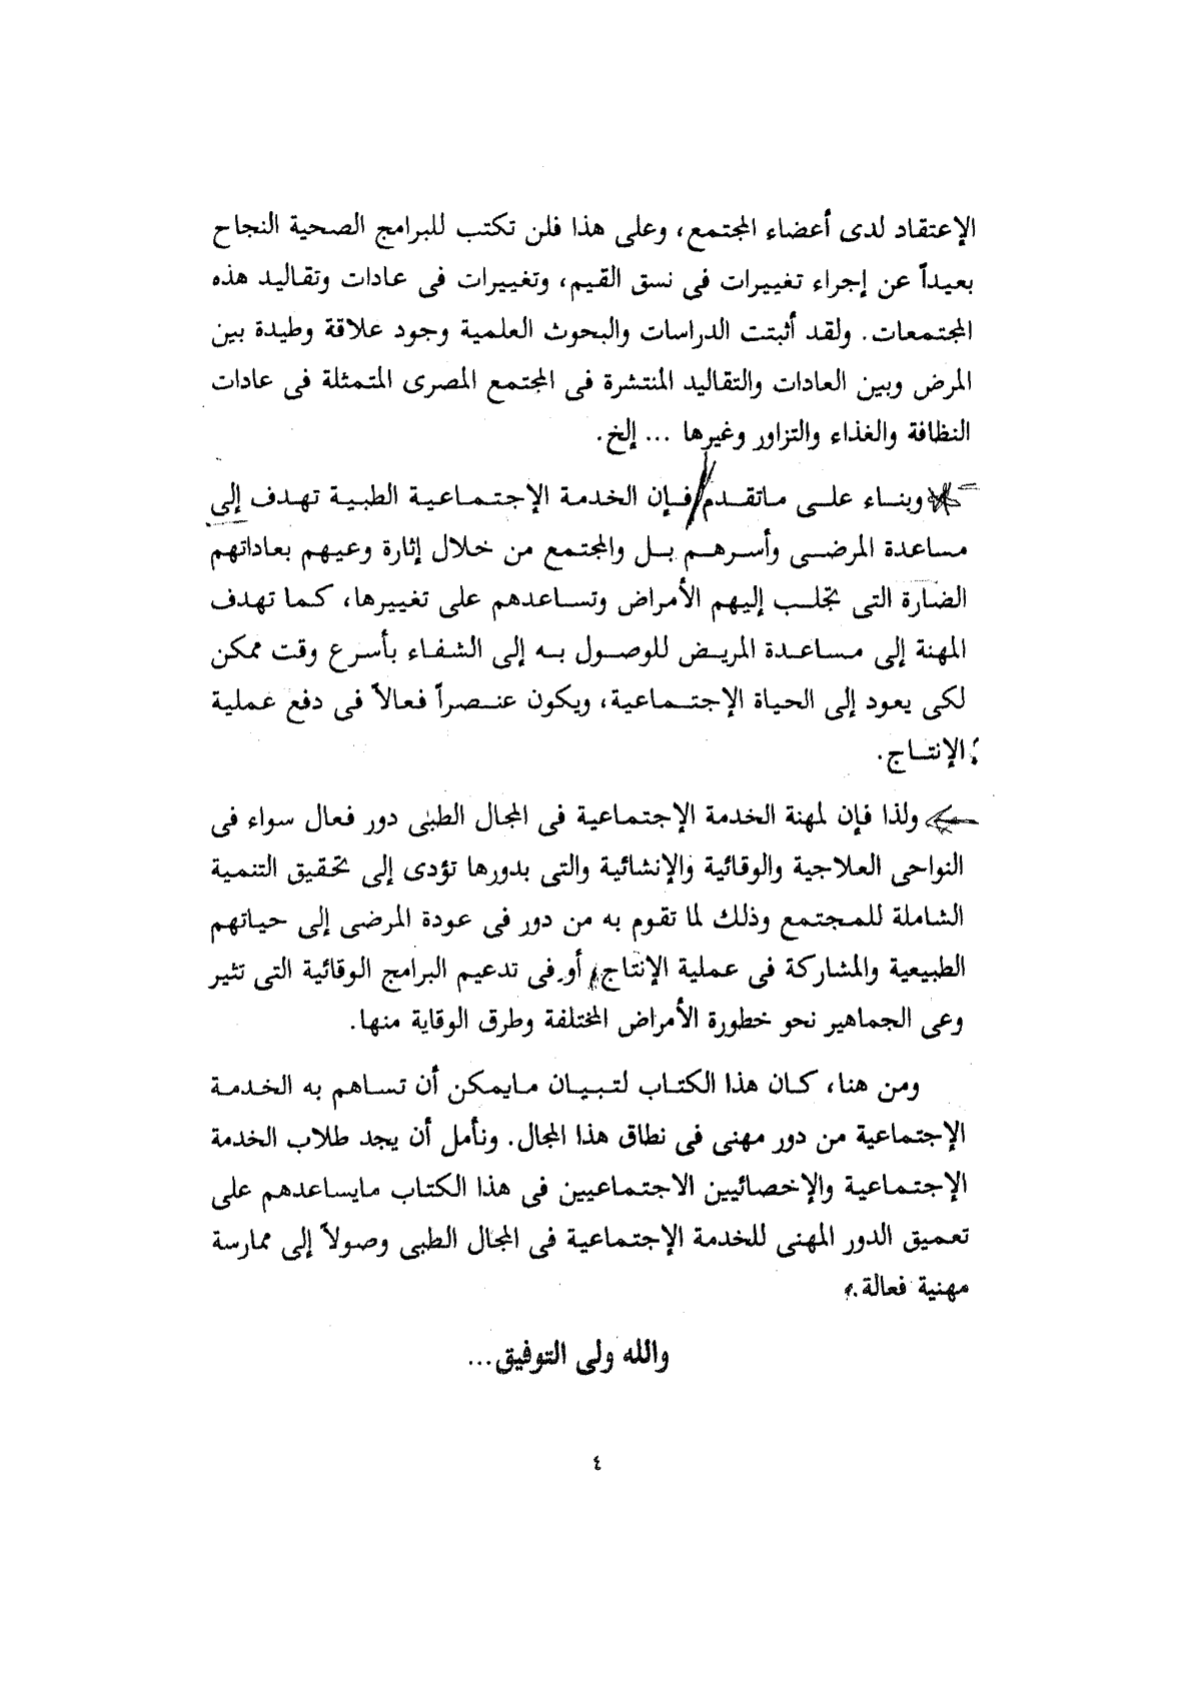 الإعتقاد لدى أعضاء المجتمع، وعلى هذا فلن تكتب للبرامج الصحية النجاح
بعيداً عن إجراء تغييرات فى نسق القيم، وتغييرات فى عادات وتقاليد هذه
المجتمعات. ولقد أثبتت الدراسات والبحوث العلمية وجود علاقة وطيدة بين
المرض وبين العادات والتقاليد المنتشرة فى المجتمع المصرى المتمثلة فى عادات
النظافة والغذاء والتزاور وغيرها ... إلخ.
وبناء على ماتقدم فإن الخدمة الإجتماعية الطبية تهدف إلى
مساعدة المرضى وأسرهم بل والمجتمع من خلال إثارة وعيهم بعاداتهم
الضارة التى تجلب إليهم الأمراض وتساعدهم على تغييرها، كما تهدف
المهنة إلى مساعدة المريض للوصول به إلى الشفاء بأسرع وقت ممكن
لكى يعود إلى الحياة الإجتماعية، ويكون عنصراً فعالاً فى دفع عملية
الإنتاج.
ولذا فإن لمهنة الخدمة الإجتماعية فى المجال الطبى دور فعال سواء فى
النواحى العلاجية والوقائية والإنشائية والتى بدورها تؤدى إلى تحقيق التنمية
الشاملة للمجتمع وذلك لما تقوم به من دور فى عودة المرضى إلى حياتهم
الطبيعية والمشاركة فى عملية الإنتاج، أو فى تدعيم البرامج الوقائية التى تثير
وعى الجماهير نحو خطورة الأمراض المختلفة وطرق الوقاية منها.
ومن هنا، كان هذا الكتاب لتبيان مايمكن أن تساهم به الخدمة
الإجتماعية من دور مهنى فى نطاق هذا المجال. ونأمل أن يجد طلاب الخدمة
الإجتماعية والإخصائيين الاجتماعيين فى هذا الكتاب مايساعدهم على
تعميق الدور المهنى للخدمة الإجتماعية فى المجال الطبى وصولاً إلى ممارسة
مهنية فعالة.
والله ولى التوفيق...
٤